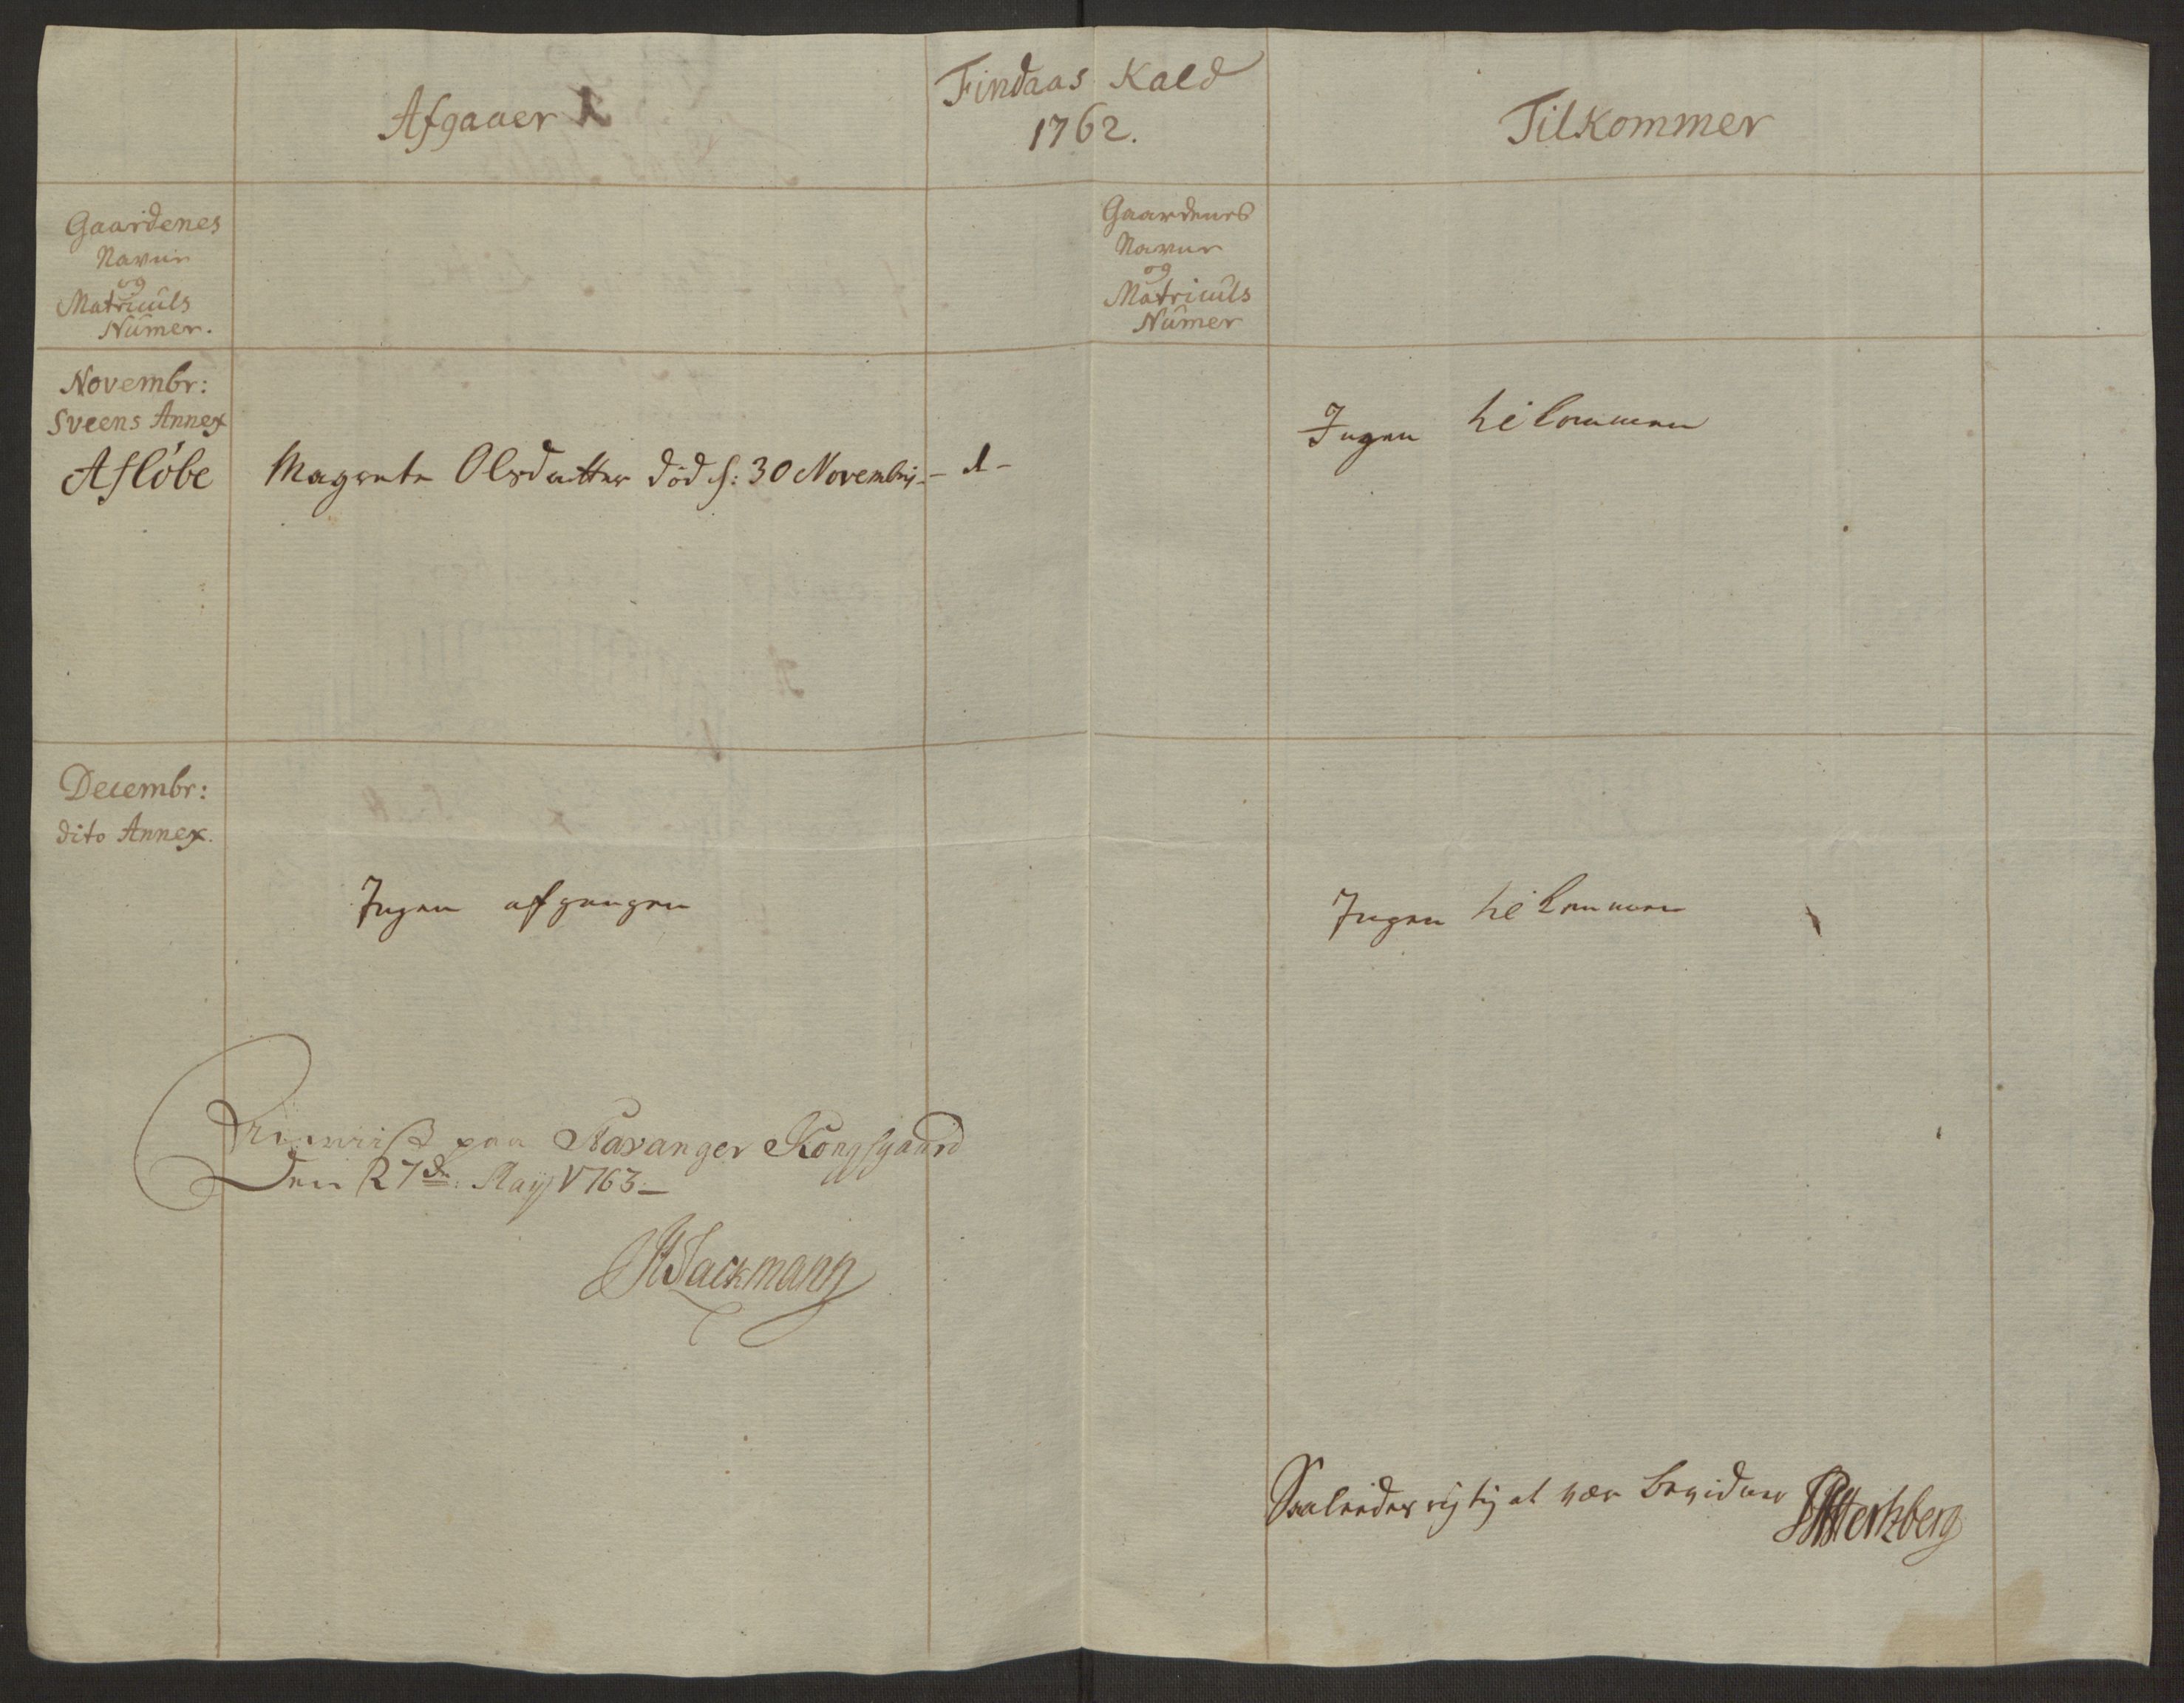 Afgaaer
Findaas Kald
1762.
Tilkommer
Gaardenes
Navne
og
Matriculs
Numer.
Gaardenes
Navne
og
Matriculs
Numer
Novembr:
Sveens Annex
Afløbe
Magrete Olsdatter død d: 30 Novembrj - 1 -
Ingen tilkommen
Decembr:
dito Annex.
Ingen afgangen
Ingen tilkommen
paa Stavanger Kongsgaard
Den 27de May 1763 -
Saaledes rigtig at være bevidner Hertzberg